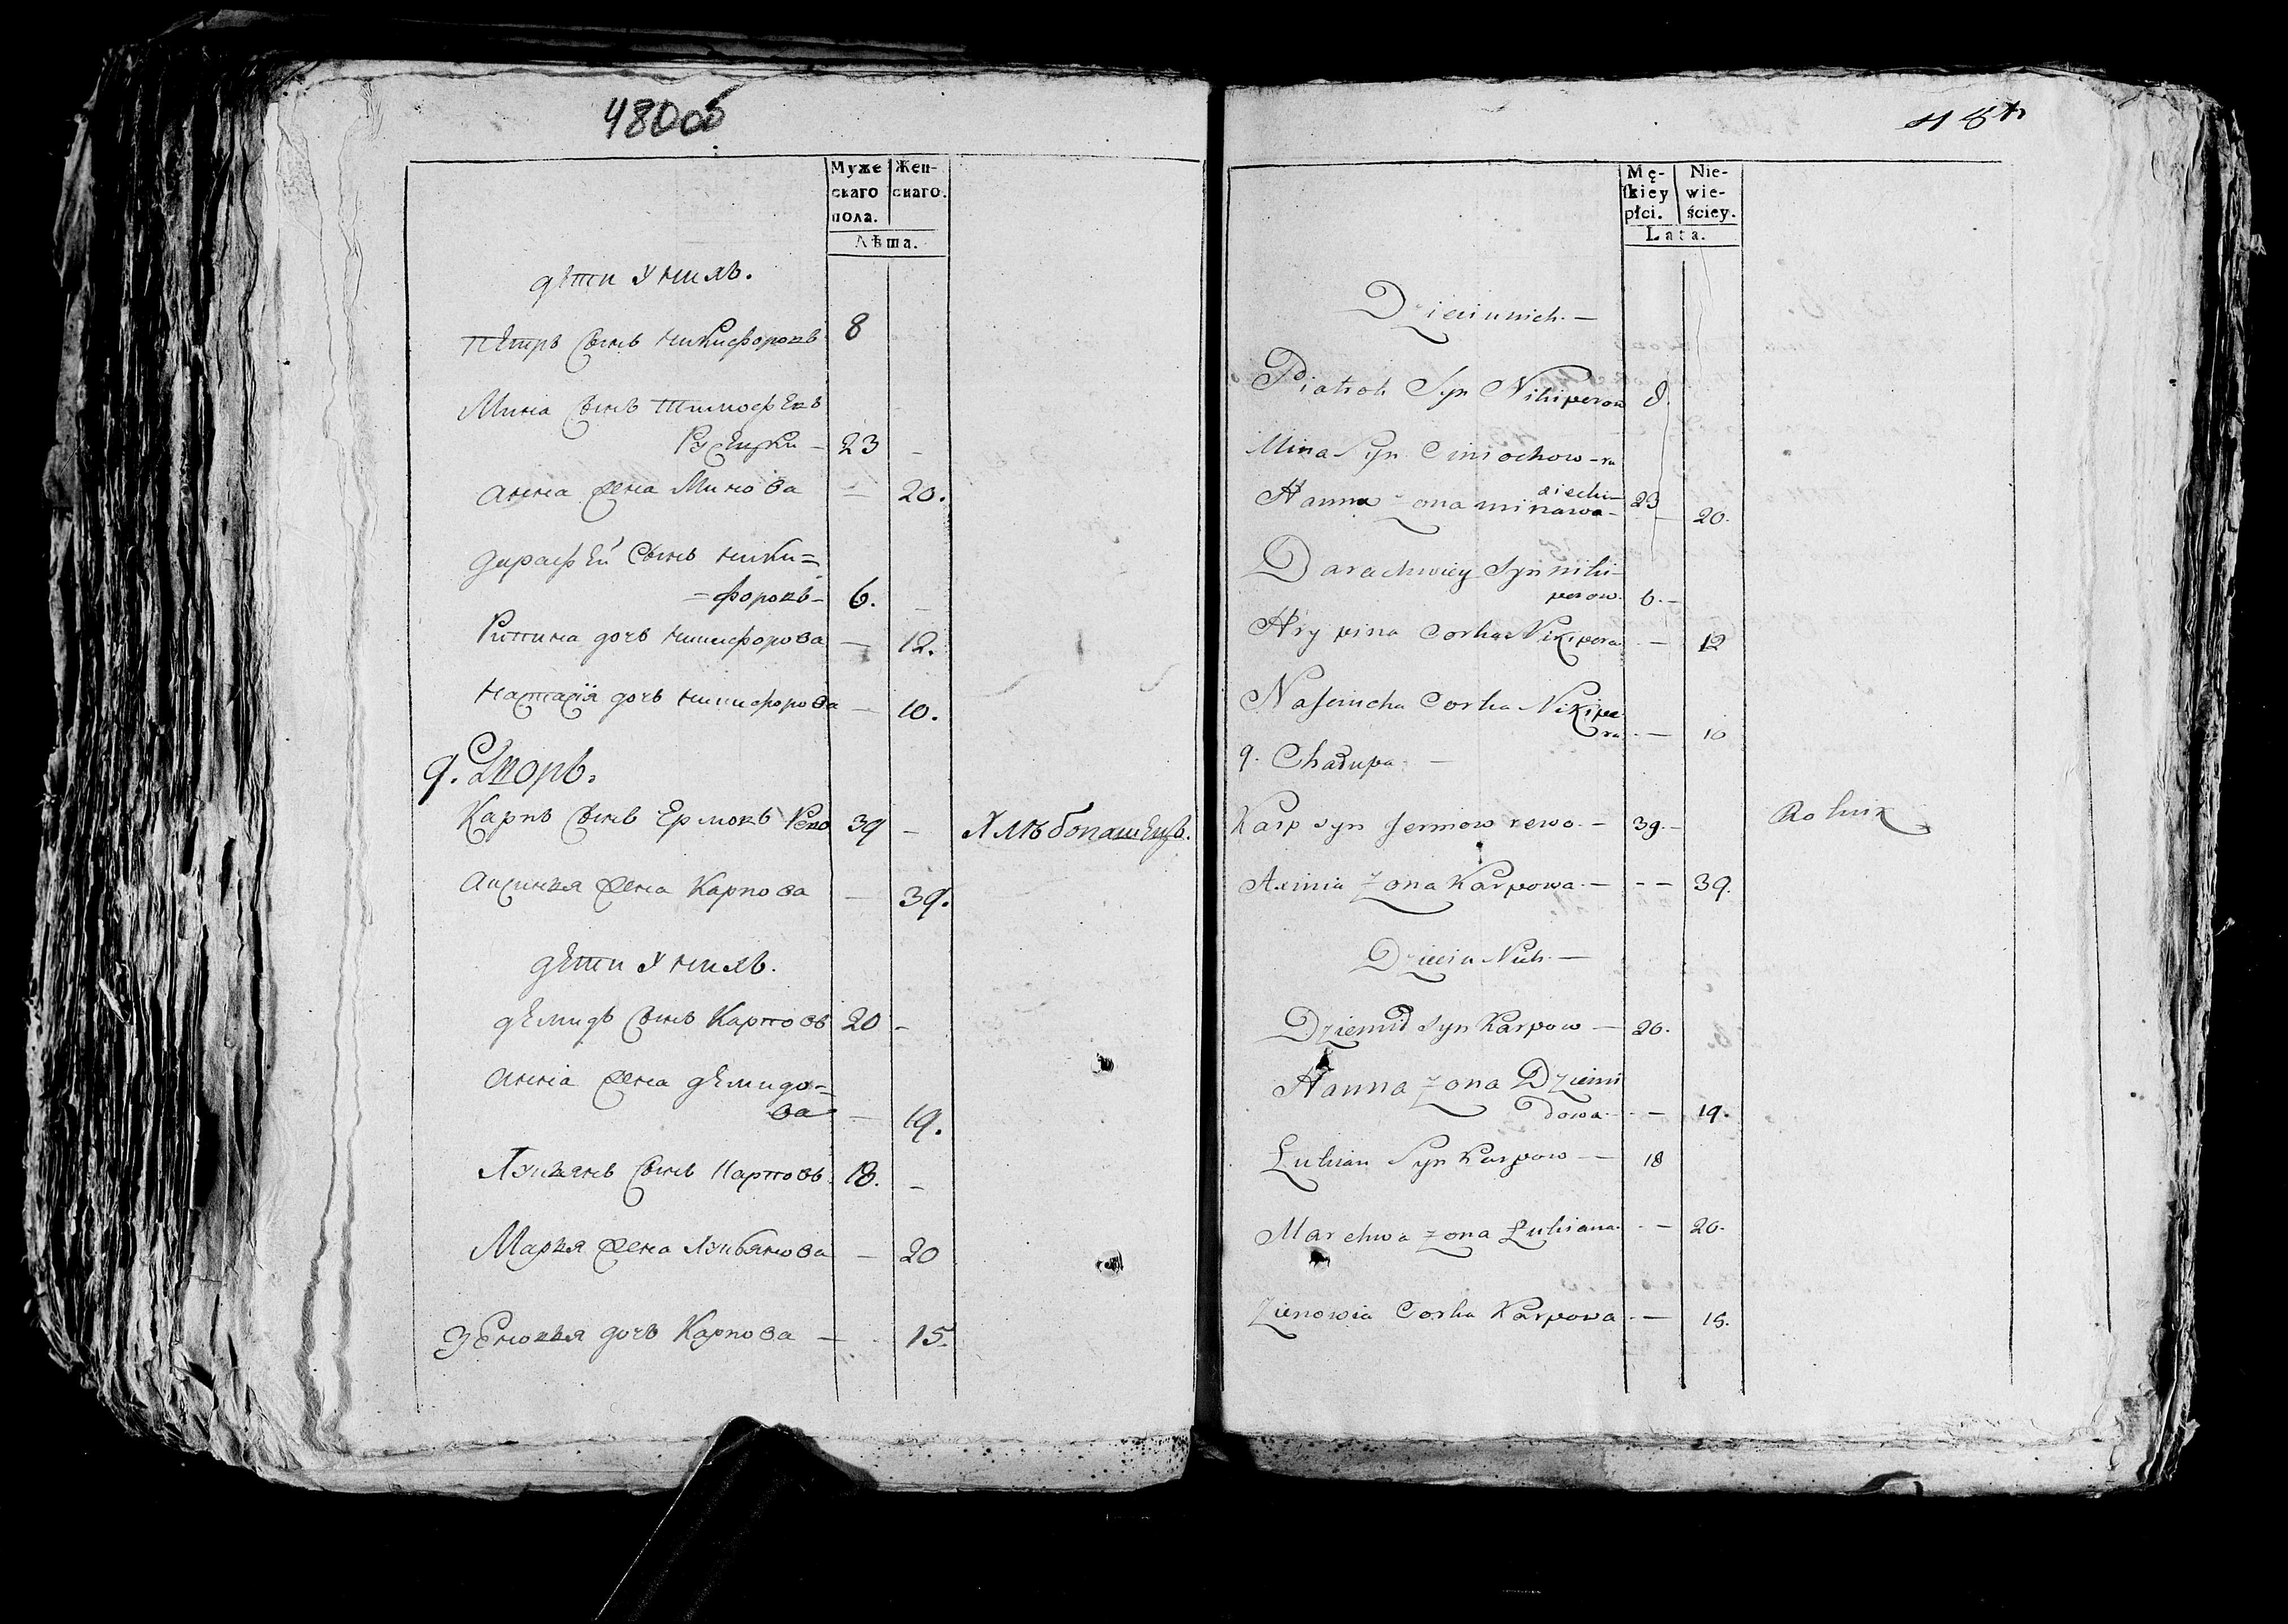 480об
Муже
скаго
пола.
Жен-
скаго.
Лѣта.
дѣти у нихъ.
Петръ сынъ никифоровъ 8
Мина сынъ тимофеевъ
23 -
Анна жена Минова - 20.
дарафей сынъ ники=
=форовъ- 6. -
Рипина дочь никифорова - 12.
настасiя дочь никифорова - 10.
9. Дворъ.
Карпъ сынъ Ермовъ Рево 39 - Хлѣбопашецъ.
Аксинья жена Карпова - 39.
дѣти у нихъ.
демидъ сынъ Карповъ 20 -
Анна жена демидо=
ва - 19.
Лукьянъ сынъ Карповъ 18. -
Марья жена Лукьянова - 20
Зеновья дочь Карпова - 15.
481
Mę-
skiey
płci.
Nie-
wie-
ściey.
Lata.
Dzieci u nich. -
Piatroh Syn Nikiperow 8.
Mina Syn Cimochow - ru
siecki - 23
Hanna zona minawa - - 20.
Darachwiey Syn niki-
perow. 6. -
Hrypina Corka Nikipora - 12
Nascincha Corka Nikipe
ra - 10
9. Chałupa. -
Karp syn Jermow rewo. - 39. - Rolnik
Axinia zona Karpowa. - - - 39.
Dzieci u Nich. -
Dziemid syn Karpow - 20.
Hanna zona Dziemi
dowa - - 19.
Łukian Syn Karpow - 18
Marchwa zona Łukiana. - 20.
Zienowia Corka Karpowa - 15.